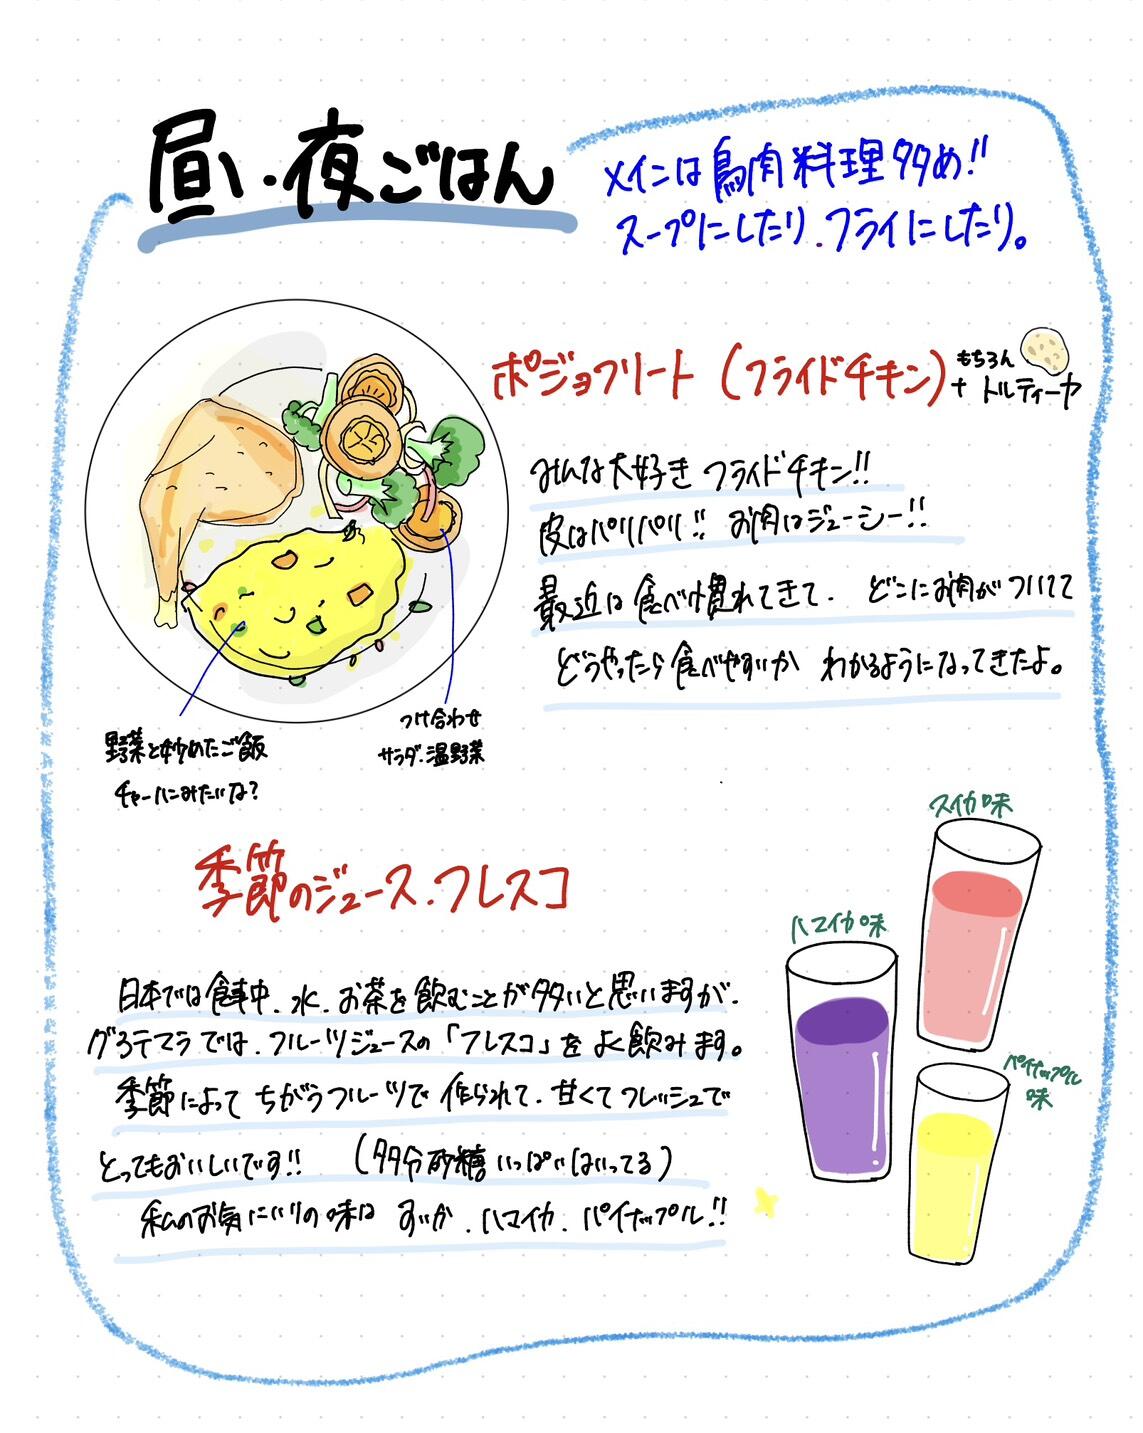 昼・夜ごはん
メインは鳥肉料理多め!!
スープにしたり、フライにしたり。
ポジョフリート（フライドチキン）
もちろん
+ トルティーヤ
みんな大好き フライドチキン!!
皮はパリパリ!! お肉はジューシー!!
最近は食べ慣れてきて、どこにお肉がついてて
どうやったら食べやすいか わかるようになってきたよ。
野菜と炒めたご飯
チャーハンみたいな?
つけ合わせ
サラダ・温野菜
季節のジュース・フレスコ
日本では食事中、水、お茶を飲むことが多いと思いますが、
グアテマラでは、フルーツジュースの「フレスコ」をよく飲みます。
季節によって ちがうフルーツで 作られて、甘くてフレッシュで
とってもおいしいです!! （多分砂糖いっぱいはいってる）
私のお気にいりの味は すいか、ハマイカ、パイナップル!!
スイカ味
ハマイカ味
パイナップル
味